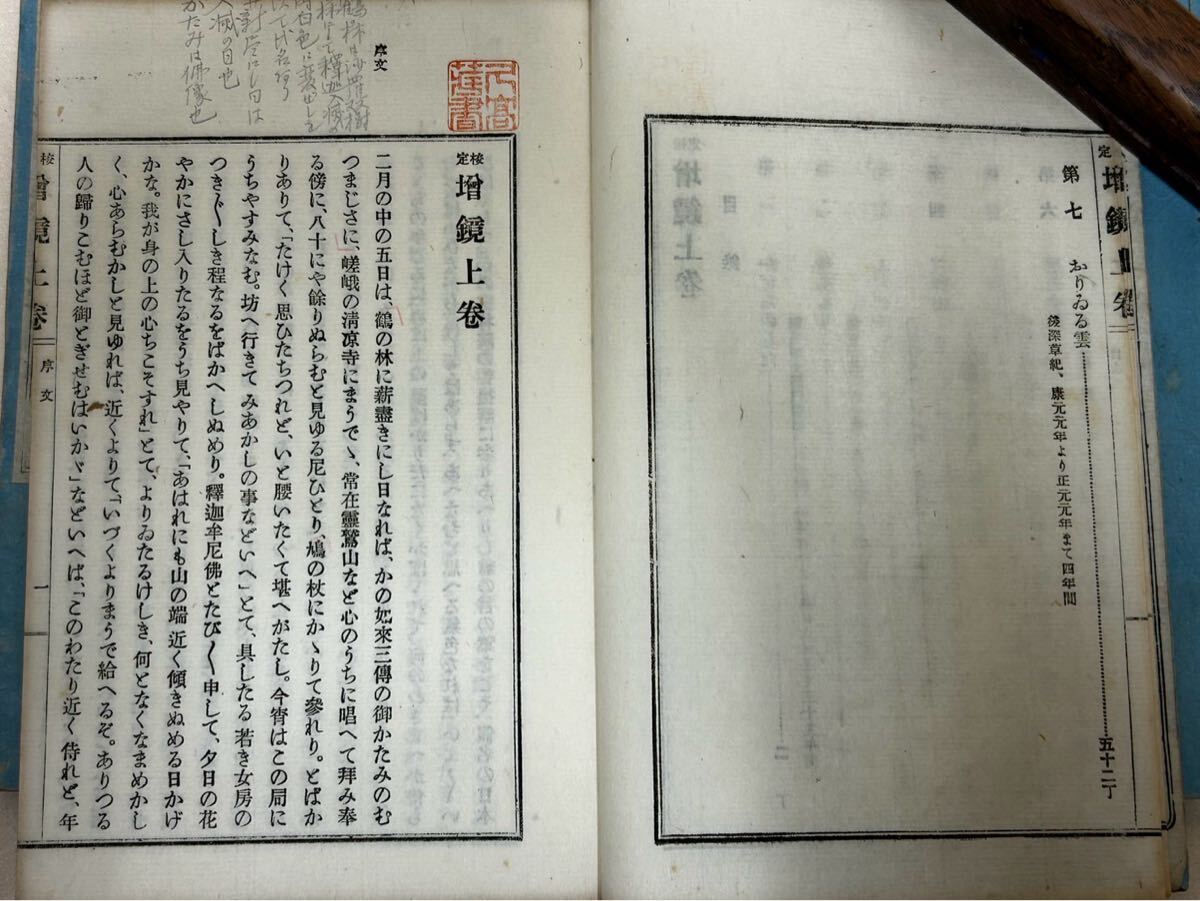 増鏡上卷
第七
おりゐる雲
五十二丁
後深草紀、康元元年より正元元年まて四年間
序文
校定 增鏡上卷
二月の中の五日は、鶴の林に薪盡きにし日なれば、かの如來三傳の御かたみのむ
つまじさに、嵯峨の清凉寺にまうでゝ、常在靈鷲山など心のうちに唱へて拜み奉
る傍に、八十にや餘りぬらむと見ゆる尼ひとり、鳩の杖にかゝりて參れり。とばか
りありて、「たけく思ひたちつれど、いと腰いたくて堪へがたし。今宵はこの局に
うちやすみなむ。坊へ行きてみあかしの事などいへ」とて、具したる若き女房の
つき〴〵しき程なるをばかへしぬめり。釋迦牟尼佛とたび〳〵申して、夕日の花
やかにさし入りたるをうち見やりて、「あはれにも山の端近く傾きぬめる日かげ
かな。我が身の上の心ちこそすれ」とて、よりゐたるけしき、何となくなまめかし
く、心あらむかしと見ゆれば、近くよりて、「いづくよりまうで給へるぞ。ありつる
人の歸りこむほど御とぎせむはいかゞ」などいへば、「このわたり近く侍れど、年
校 增鏡上卷 序文 一
入滅の日也
かたみは佛像也